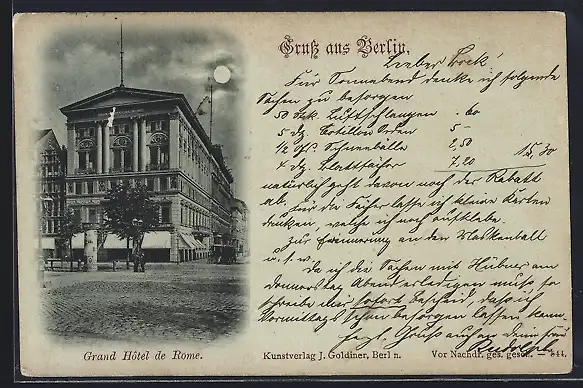 Gruß aus Berlin.
Lieber
Für Sonnabend denke ich folgende
Sachen zu besorgen
50 Stk. Luftschlangen . 60
5 dz. Cotillon Orden 5 -
1/2 Schneebälle 2,50
4 dz. Blattfächer 7,20 15,30
natürlich geht davon noch der Rabatt
ab, für die Fächer lasse ich kleine Karten
drucken, welche ich noch aufklebe.
Zur Erinnerung an den Maskenball
u. s. w.
Da ich die Sachen mit Hübner am
Donnerstag Abend erledigen muss, so
schreibe mir sofort Bescheid, dass ich
Vormittags schon besorgen lassen kann.
Gruß auch an Deine Frau
Rudolph
Grand Hôtel de Rome.
Kunstverlag J. Goldiner, Berlin.
Vor Nachdr. ges. gesch. — 544.